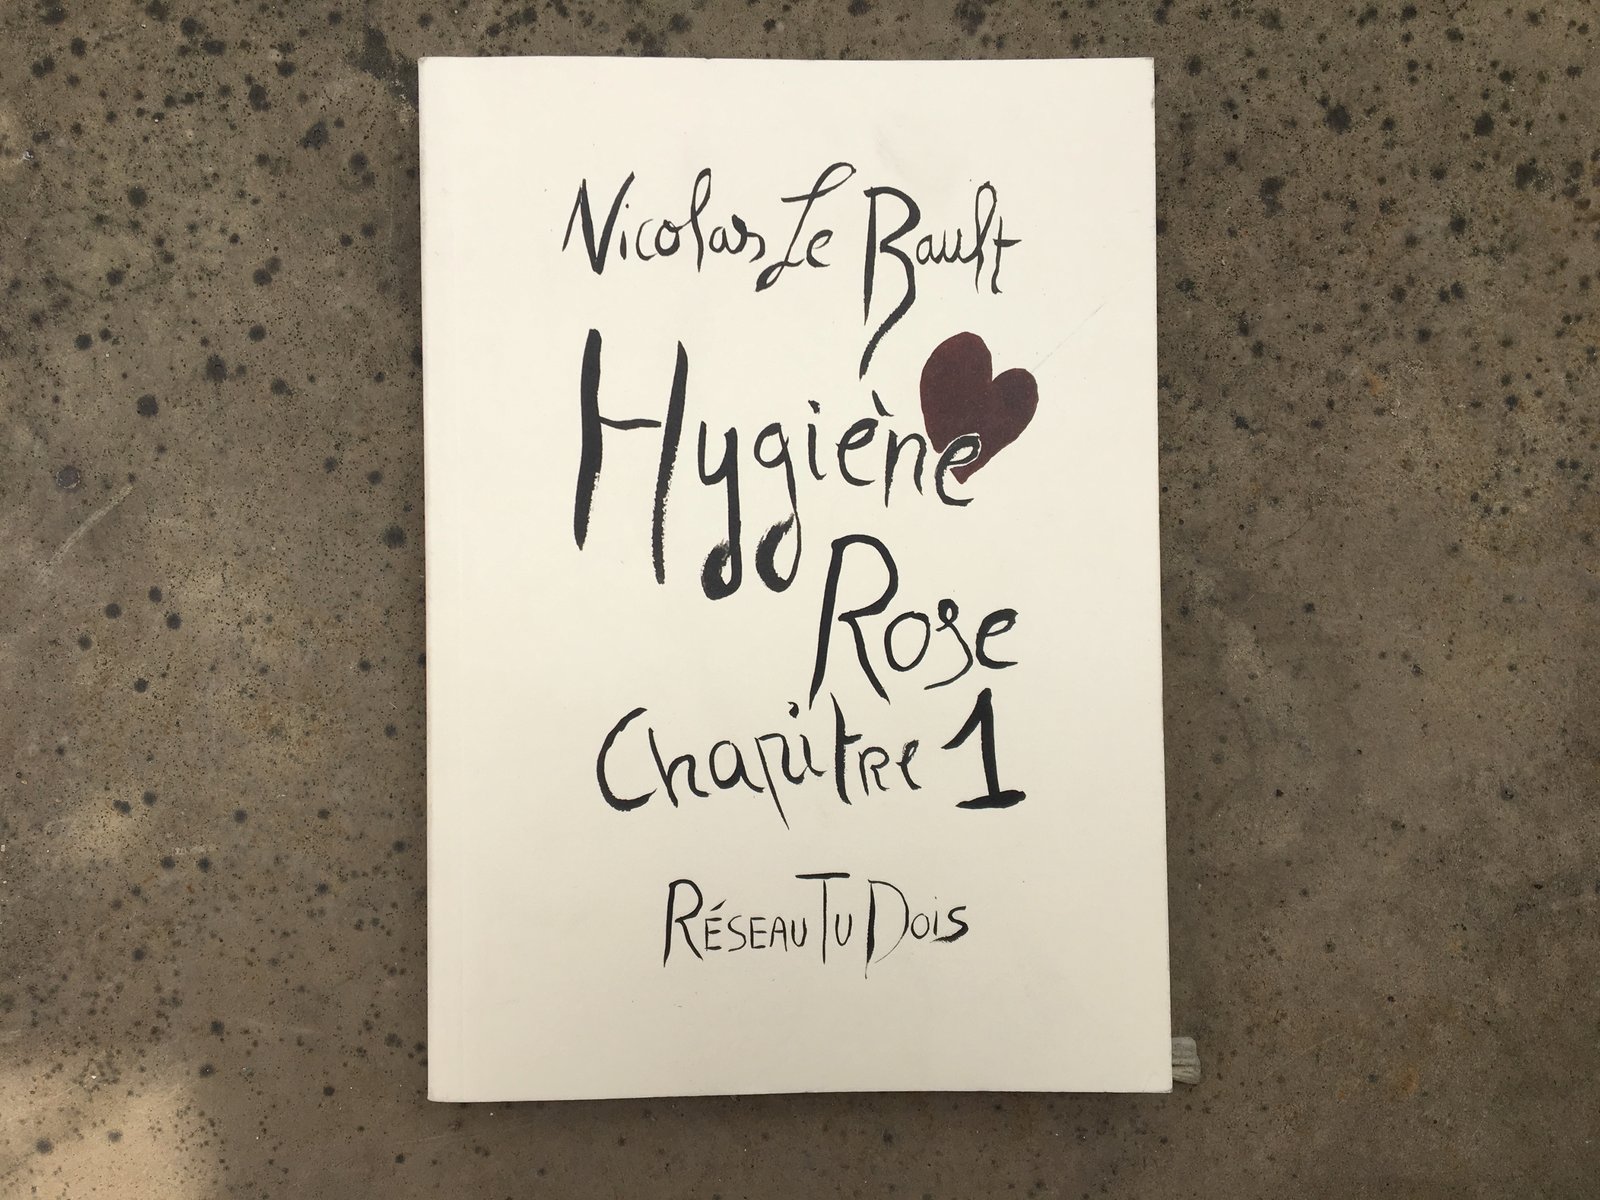 Nicolas Le Bault
Hygiène
Rose
Chapitre 1
RÉSEAU TU DOIS